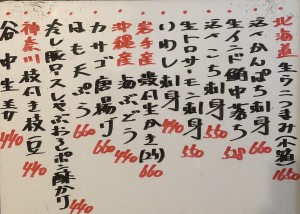 北海道 生うにつまみ(小箱) 1650
活〆かんぱち刺身 660
生インド鮪中落ち 528
活〆こち刺身 550
生トロサーモン刺身 550
いわし刺身 440
岩手産 殻付生かき(2ヶ) 660
沖縄産 海ぶどう 440
カサゴ唐揚げ 660
はも天ぷら 660
冷し豚ロースしゃぶおろしポン酢かけ 440
神奈川 枝付き枝豆 440
谷中生姜 440